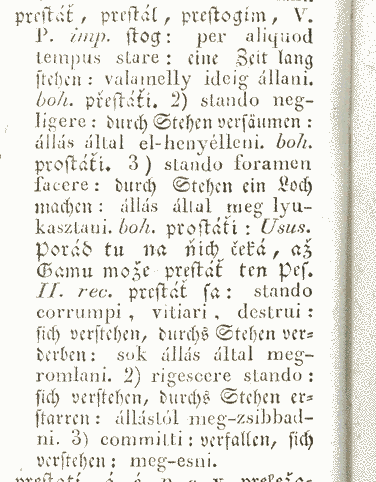 prestáť, prestál, prestogím, V.
P. imp. stog: per aliquod
tempus stare: eine Zeit lang
stehen: valamelly ideig állani.
boh. přestáti. 2) stando neg-
ligere: durch Stehen versäumen:
állás által el-henyélleni. boh.
prostáti. 3) stando foramen
facere: durch Stehen ein Loch
machen: állás által meg lyu-
kasztani. boh. prostáti: Usus.
Porád tu na ňich čeká, až
Gamu može prestáť ten Pes.
II. rec. prestáť sa: stando
corrumpi, vitiari, destrui:
sich verstehen, durchs Stehen ver-
derben: sok állás által meg-
romlani. 2) rigescere stando:
sich verstehen, durchs Stehen er-
starren: állástól meg-zsibbad-
ni. 3) committi: verfallen, sich
verstehen: meg-esni.